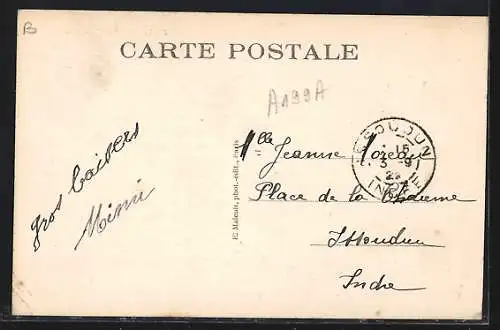 B
CARTE POSTALE
A199A
gros baisers
Mimi
El Malcuit, phot.-édit., Paris
Mlle Jeanne
Place de la
Issoudun
Indre
ISSOUDUN
15
3 -9
INDRE